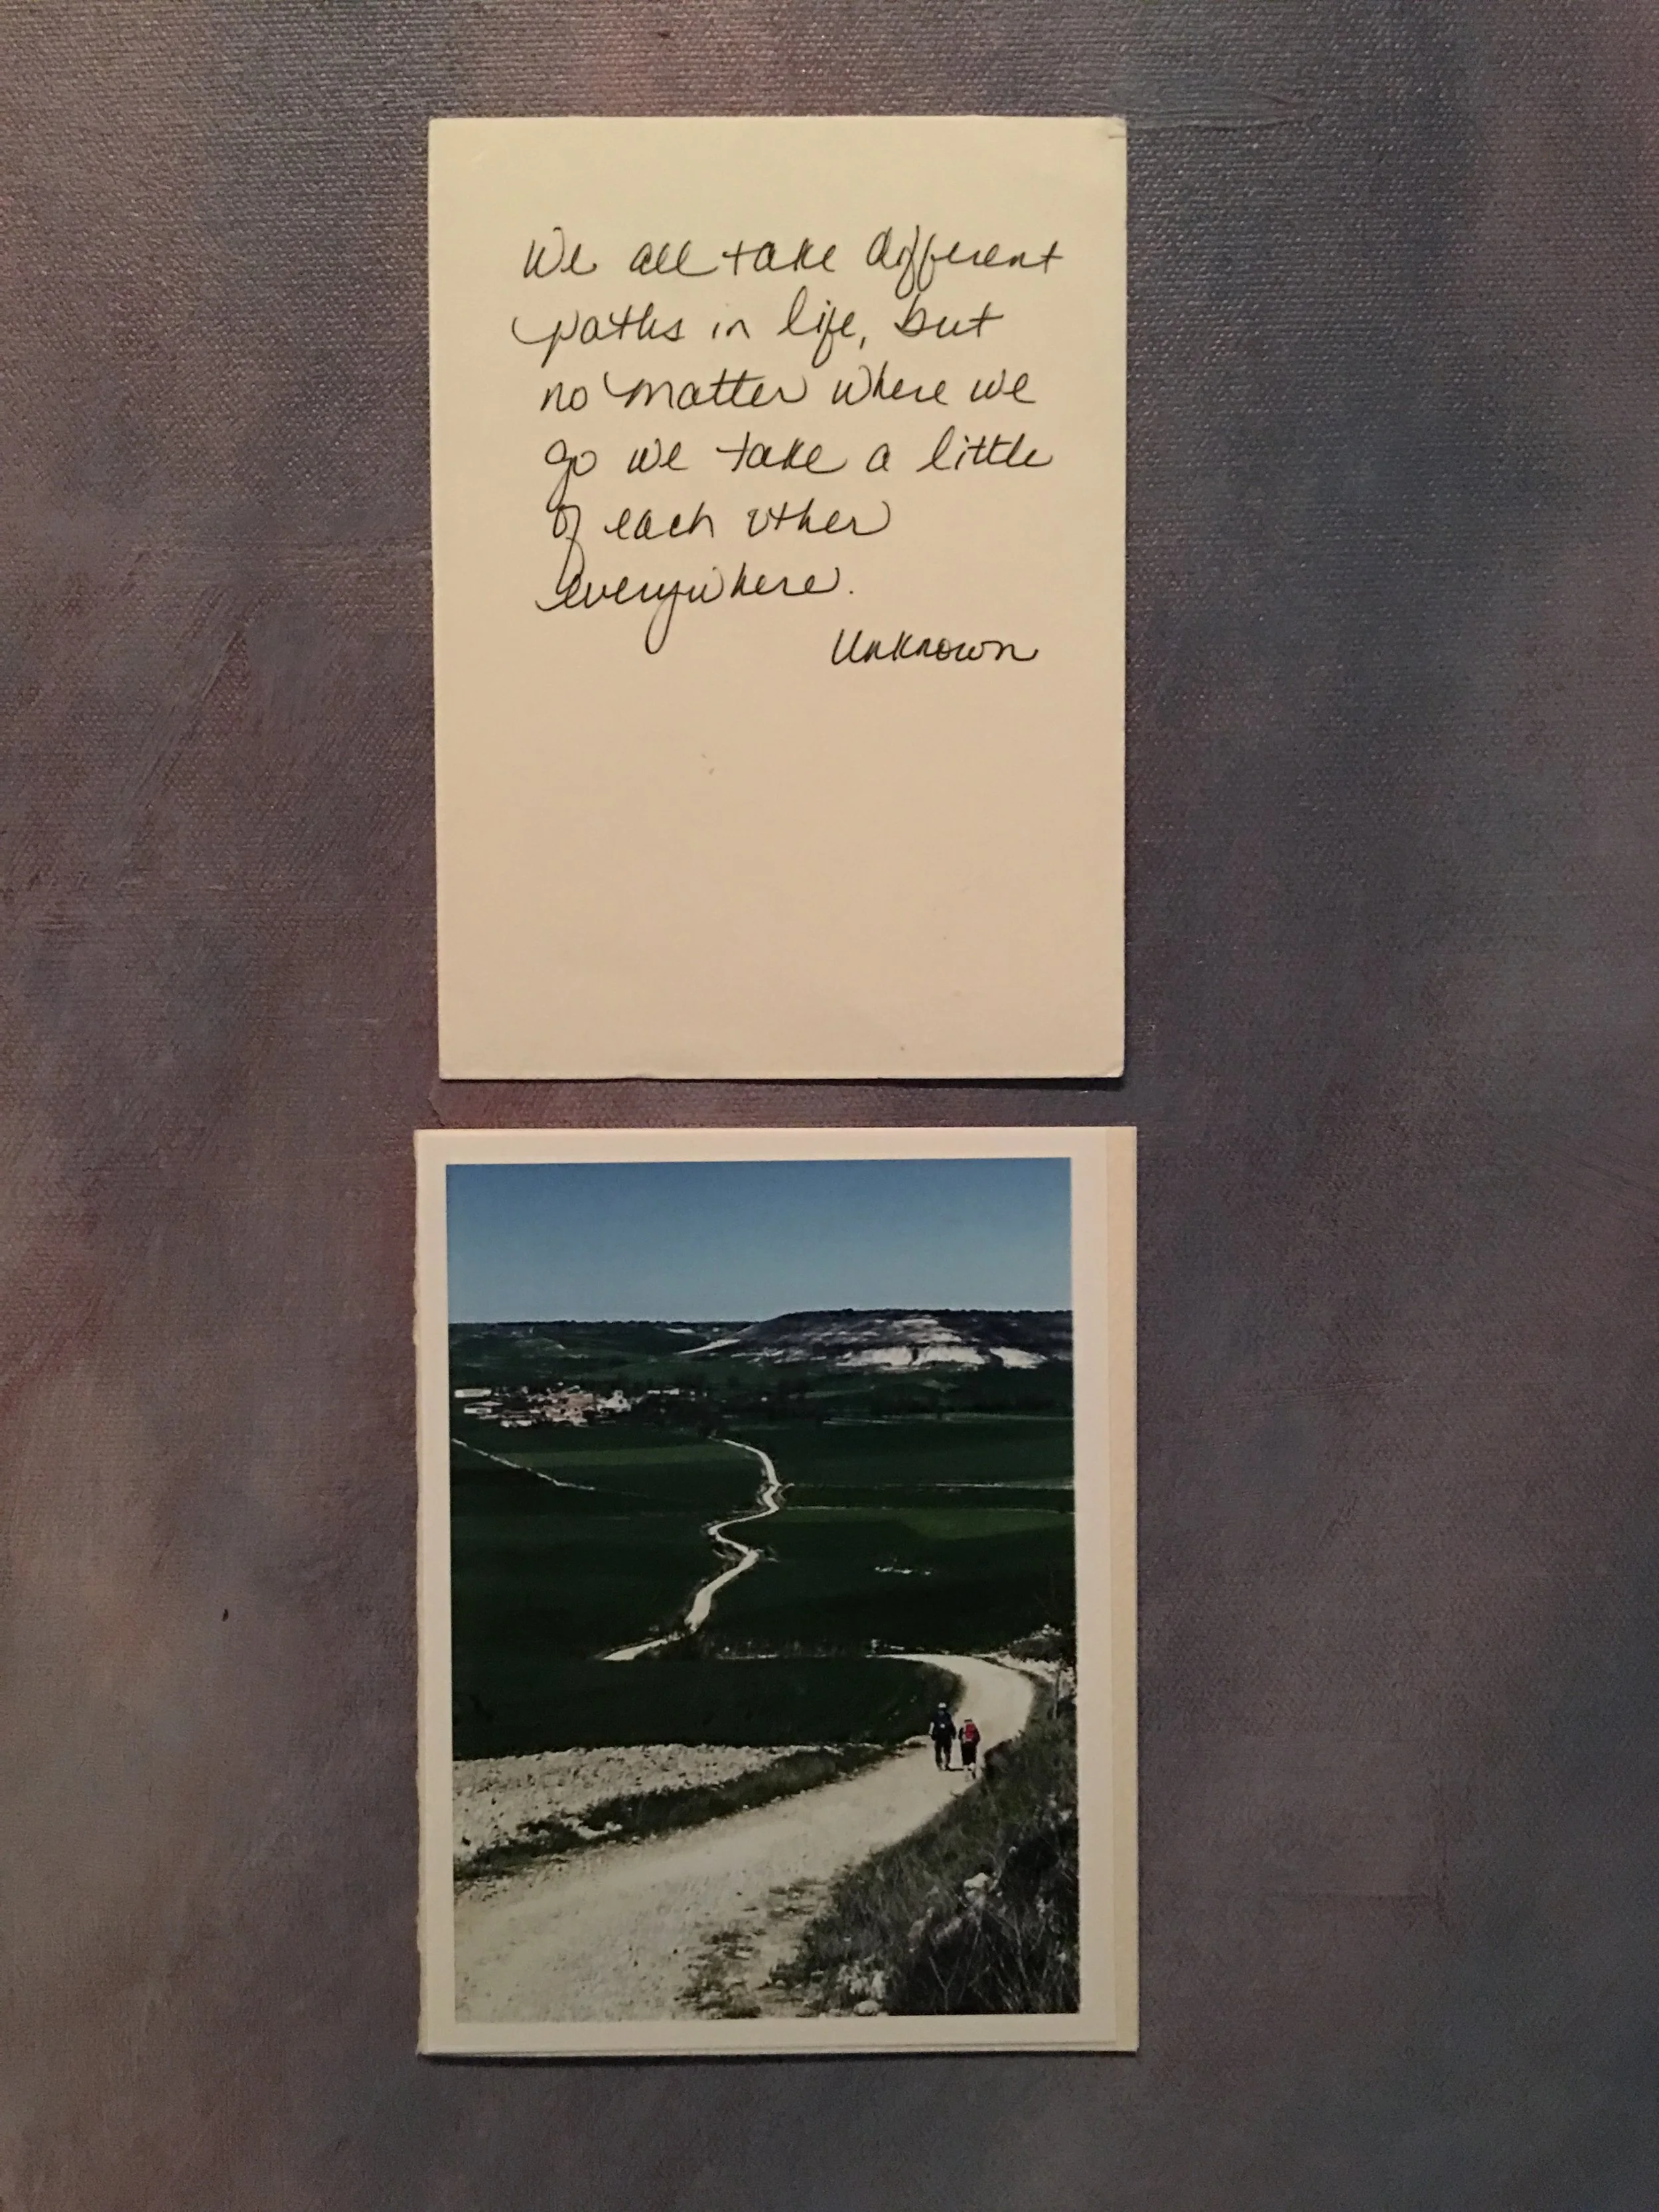 We all take different
paths in life, but
no matter where we
go we take a little
of each other
everywhere.
Unknown